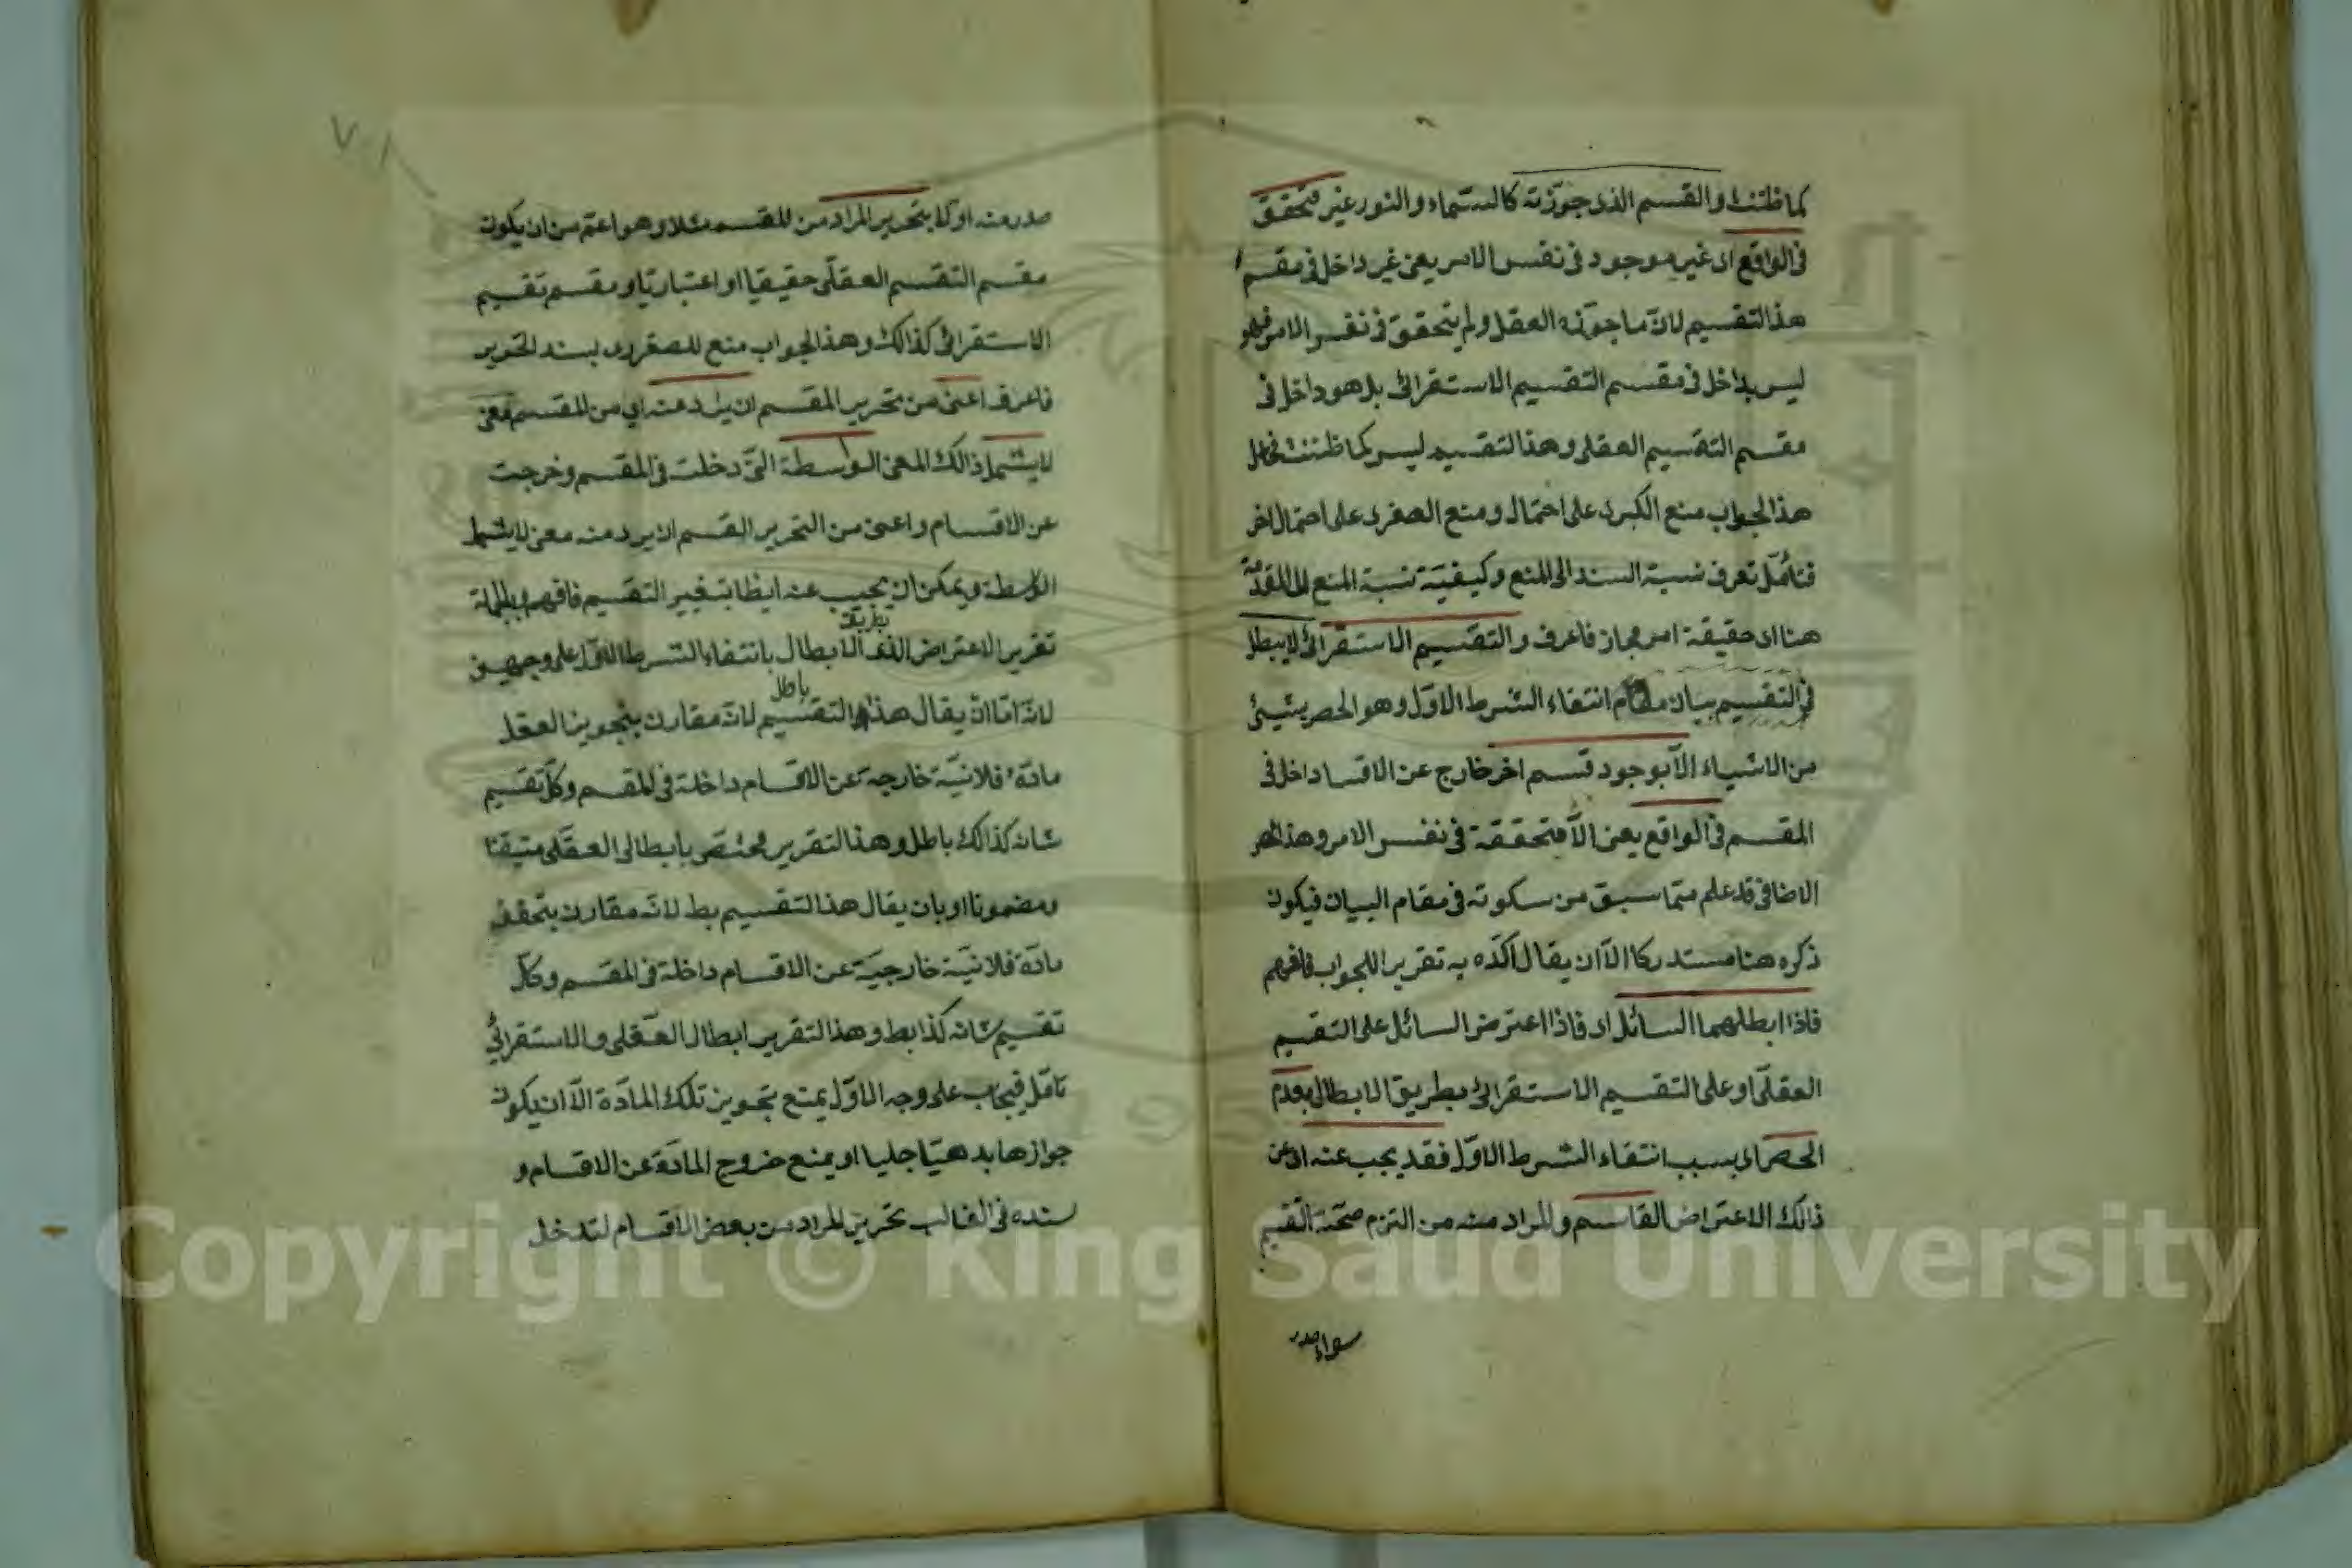 كما ظننت والقسم الذى جوزته كالسماء والنور غير متحقق
فى الواقع اى غير موجود فى نفس الامر يعنى غير داخل فى مقسم
هذا التقسيم لانّ ما جوّزه العقل ولم يتحقق فى نفس الامر فهو
ليس بداخل فى مقسم التقسيم الاستقرائى بل هو داخل فى
مقسم التقسيم العقلى وهذا التقسيم ليس كما ظننت
هذا الجواب منع الكبرى على احتمال ومنع الصغرى على احتمال اخر
فتأمّل تعرف نسبة السند الى المنع وكيفيّة نسبة المنع الى المقدّمة
هنا اى حقيقة ام مجاز فاعرف والتقسيم الاستقرائى لا يبطل
فى التقسيم بيان انتفاء الشرط الاوّل وهو الحصر بشيئ
من الاشياء الّا بوجود قسم اخر خارج عن الاقسا داخل فى
المقسم فى الواقع يعنى الّا متحققة فى نفس الامر وهذا الحصر
الاضافى قد علم ممّا سبق من سكوته فى مقام البيان فيكون
ذكره هنا مستدركا الّا ان يقال اكّده به تقريرا للجواب فافهم
فاذا ابطلهما السائل اى فاذا اعترض السائل على التقسيم
العقلى او على التقسيم الاستقرائى بطريق الابطال بعدم
الحصر اى بسبب انتفاء الشرط الاوّل فقد يجب عنه اى عن
ذالك الاعتراض القاسم والمراد منه من التزم صحّة التقسيم
سواء صدر
صدر منه او لا بتحرير المراد من المقسم مثلا وهو اعمّ من ان يكون
مقسم التقسيم العقلّى حقيقيا او اعتباريّا ومقسم تقسيم
الاستقرائى كذالك وهذا الجواب منع للصغرى بسند التحرير
فاعرف اعنى من تحرير المقسم ان يراد عنه اى من المقسم معنى
لا يشمل ذالك المعنى الواسطة التى دخلت فى المقسم وخرجت
عن الاقسام واعنى من التحرير القسم ان يرد منه معنى لا يشمل
الواسطة ويمكن ان يجيب عنه ايظا بتغيير التقسيم فافهم وبالجملة
بطريق
تقرير الاعتراض الذى الابطال بانتفاء الشرط الاوّل على وجهين
باطل
لانّه امّا ان يقال هذا التقسيم لانّه مقارن بتجويز العقل
مادّة فلانيّة خارجة عن الاقسام داخلة فى المقسم وكلّ تقسيم
شانه كذالك باطل وهذا التقرير مختصّ بابطال العقلّى متيقنا
ومضمونا او بان يقال هذا التقسيم بط لانّه مقارن بتحقق
مادّة فلانيّة خارجيّة عن الاقسام داخلة فى المقسم وكلّ
تقسيم شانه كذا بط وهذا التقرير ابطال العقلى والاستقرائى
تامّل فيجاب على وجه الاوّل بمنع تجويز تلك المادّة الّا ان يكون
جوازها بدهيّا جليا او بمنع خروج المادّة عن الاقسام و
سنده فى الغالب تحرير المراد من بعض الاقسام لتدخل
Copyright © King Saud University